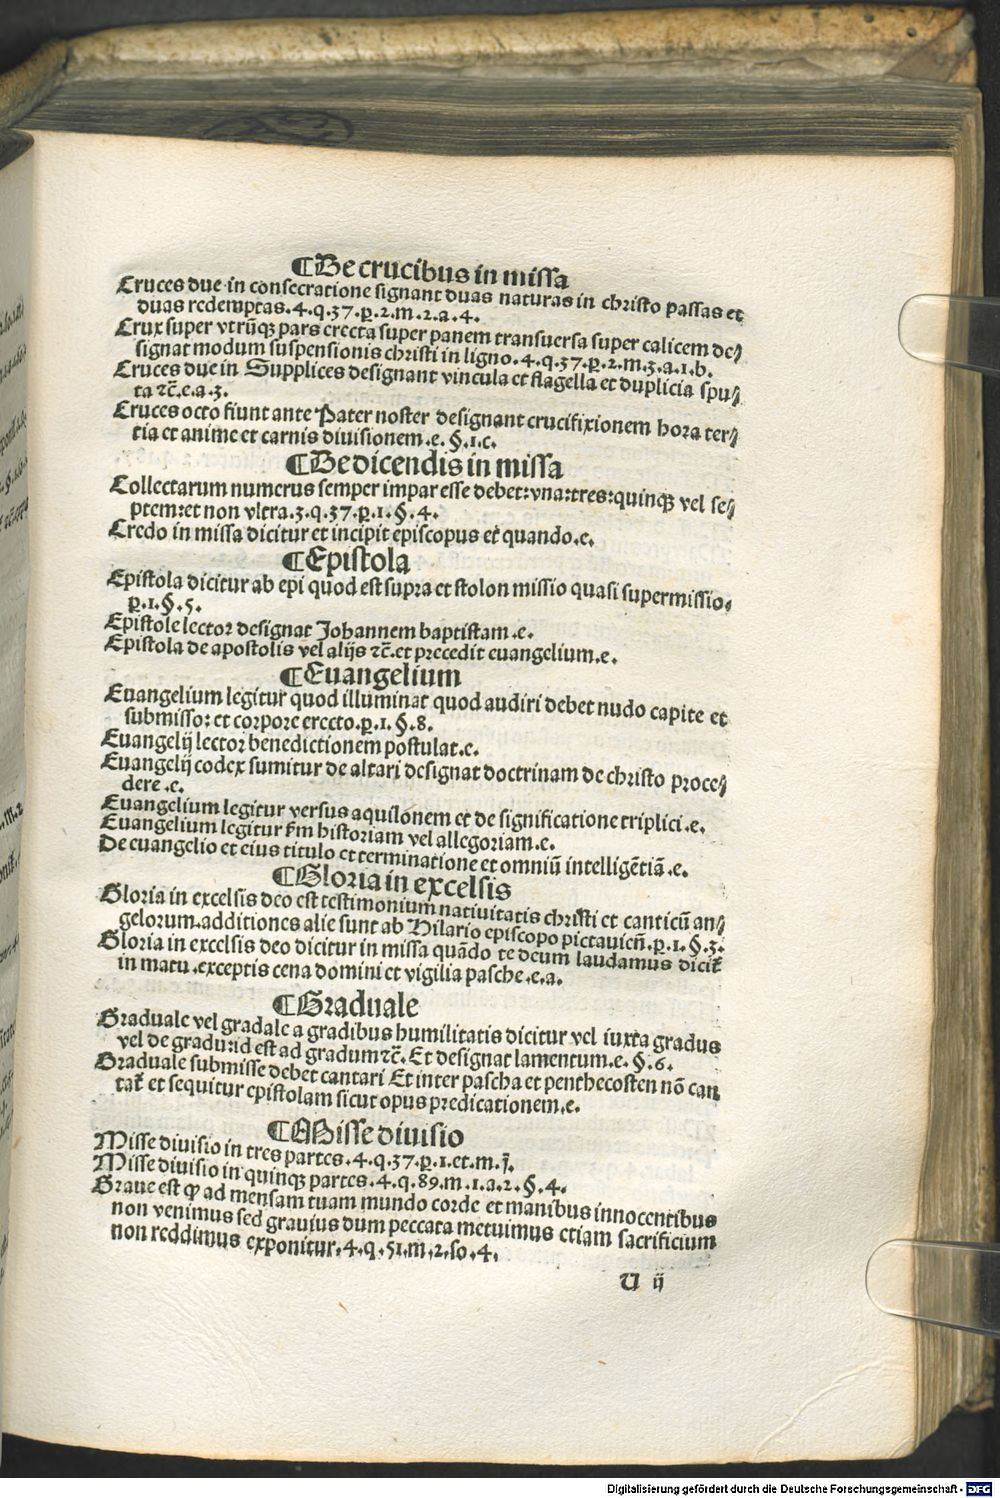 ¶De crucibus in missa
Cruces due in consecratione signant duas naturas in christo passas et
duas redemptas.4.q.37.p̲.2.m.2.a.4.
Crux super vtrũqꝫ pars erecta super panem transuersa super calicem de⸗
signat modum suspensionis christi in ligno.4.q.37.p̲.2.m.3.a.1.b.
Cruces due in Supplices designant vincula et flagella et duplicia spu⸗
ta ⁊c̃.e.a.3.
Cruces octo fiunt ante Pater noster designant crucifixionem hora ter⸗
tia et anime et carnis diuisionem.e.§.1.c.
¶De dicendis in missa
Collectarum numerus semper impar esse debet:vna:tres:quinqꝫ vel se⸗
ptem:et non vltra.3.q.37.p̲.1.§.4.
Credo in missa dicitur et incipit episcopus et quando.e.
¶Epistola
Epistola dicitur ab epi quod est supra et stolon missio quasi supermissio.
p̲.1.§.5.
Epistole lector designat Johannem baptistam.e.
Epistola de apostolis vel alijs ⁊c̃.et precedit euangelium.e.
¶Euangelium
Euangelium legitur quod illuminat quod audiri debet nudo capite et
submisso: et corpore erecto.p̲.1.§.8.
Euangelij lector benedictionem postulat.e.
Euangelij codex sumitur de altari designat doctrinam de christo proce⸗
dere.e.
Euangelium legitur versus aquilonem et de significatione triplici.e.
Euangelium legitur ẜm historiam vel allegoriam.e.
De euangelio et eius titulo et terminatione et omniũ intelligẽtiã.e.
¶Gloria in excelsis
Gloria in excelsis deo est testimonium natiuitatis christi et canticũ an⸗
gelorum.additiones alie sunt ab Hilario episcopo pictauicñ.p̲.1.§.3.
Gloria in excelsis deo dicitur in missa quãdo te deum laudamus dicit᷑
in matu.exceptis cena domini et vigilia pasche.e.a.
¶Graduale
Graduale vel gradale a gradibus humilitatis dicitur vel iuxta gradus
vel de gradu:id est ad gradum ⁊c̃. Et designat lamentum.e.§.6.
Graduale submisse debet cantari Et inter pascha et penthecosten nõ can
tat᷑ et sequitur epistolam sicut opus predicationem.e.
¶Misse diuisio
Misse diuisio in tres partes.4.q.37.p̲.1.et.m.j.
Misse diuisio in quinqꝫ partes.4.q.89.m.1.a.2.§.4.
Graue est ꝙ ad mensam tuam mundo corde et manibus innocentibus
non venimus sed grauius dum peccata metuimus etiam sacrificium
non reddimus exponitur.4.q.51.m.2.so.4.
U ij
Digitalisierung gefördert durch die Deutsche Forschungsgemeinschaft - DFG